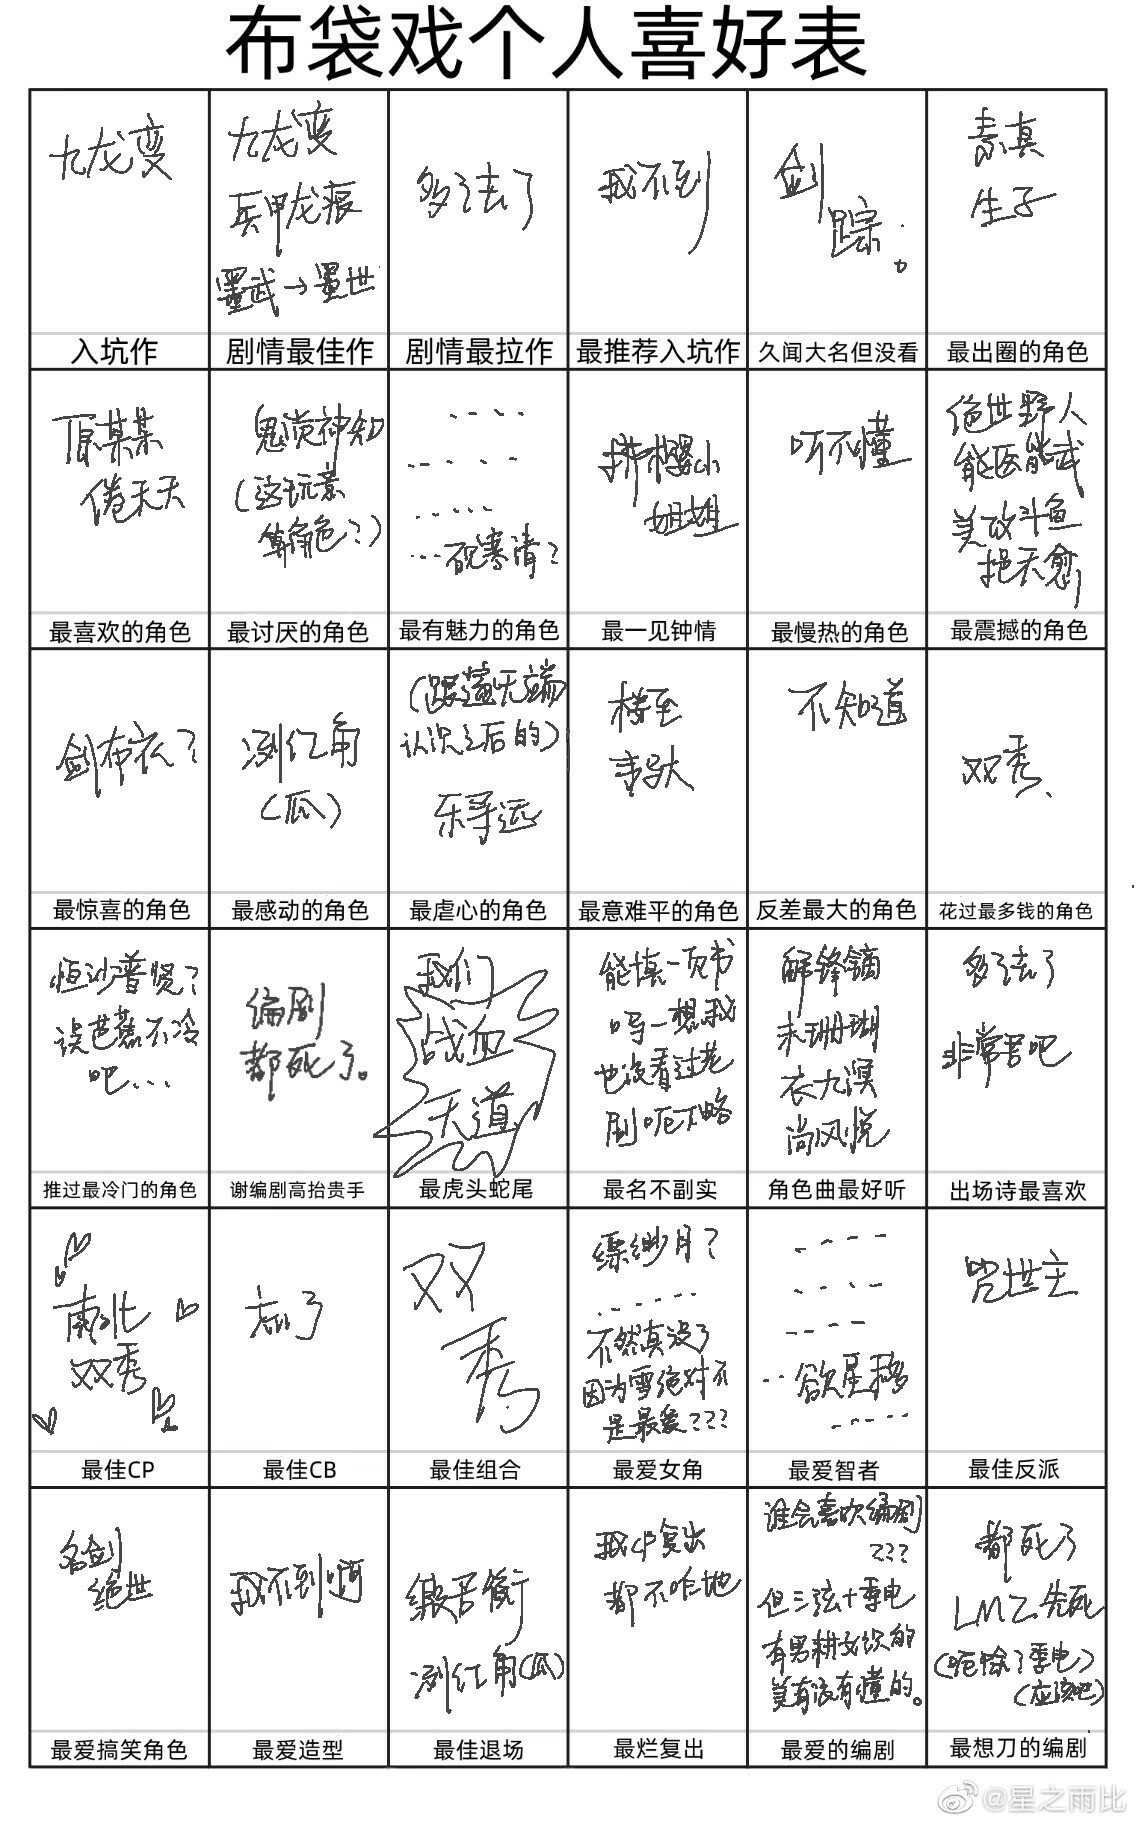 布袋戏个人喜好表
九龙变
入坑作
九龙变
兵甲龙痕
墨武→墨世
剧情最佳作
多了去了
剧情最拉作
找不到
最推荐入坑作
剑
踪。
久闻大名但没看
素真
生子
最出圈的角色
原某某
倦天天
最喜欢的角色
鬼谟神知
(这玩意
算角色?)
最讨厌的角色
....
....
.....
...祝寒清?
最有魅力的角色
拂樱小
姐姐
最一见钟情
听不懂
最慢热的角色
绝世野人
能医能武
美攻斗鱼
挹天愈
最震撼的角色
剑布衣?
最惊喜的角色
冽红角
(瓜)
最感动的角色
(跟
认识之后的)
乐寻远
最虐心的角色
楼至
韦驮
最意难平的角色
不知道
反差最大的角色
双秀、
花过最多钱的角色
恒沙普贤?
误芭蕉不冷
吧...
推过最冷门的角色
编剧
都死了。
谢编剧高抬贵手
我们
战血
天道
最虎头蛇尾
能填一页书
吗一想我
也没看过老
剧呃不略
最名不副实
解锋镝
末珊瑚
衣九溟
尚风悦
角色曲最好听
多了去了
非常君吧
出场诗最喜欢
南北
双秀
最佳CP
忘了
最佳CB
双
秀
最佳组合
缥缈月?
......
不然真没了
因为雪绝对不
是最爱???
最爱女角
....
....
....
..欲星移
.....
最爱智者
咒世主
最佳反派
名剑
绝世
最爱搞笑角色
找不到啊
最爱造型
缎君衡
冽红角(瓜)
最佳退场
我CP复出
都不咋地
最烂复出
谁会喜欢编剧
???
但三弦+季电
有男耕女织的
美有没有懂的。
最爱的编剧
都死了
LMZ先死
(呃除了季电)
(应该吧)
最想刀的编剧
@星之雨比